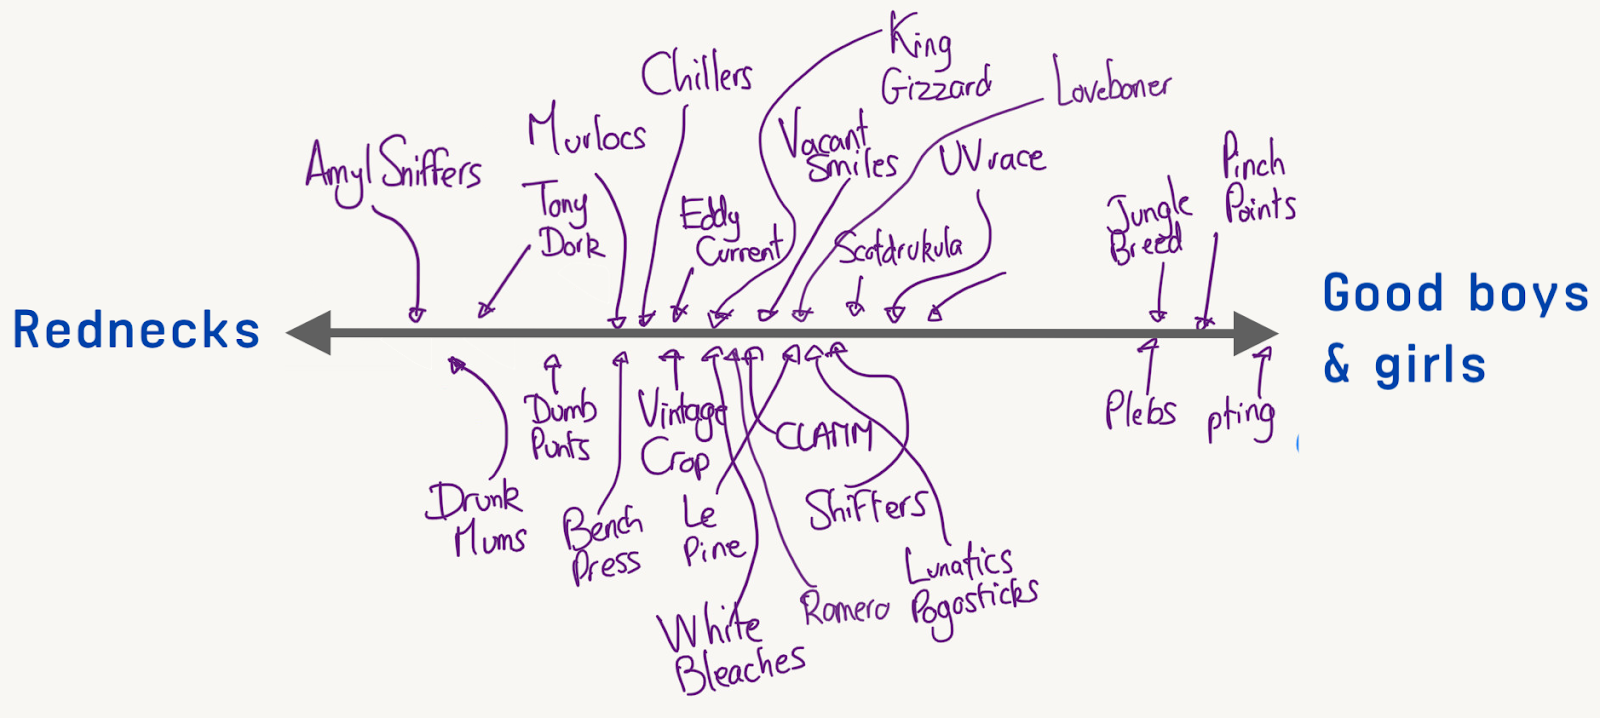 King
Gizzard
Chillers
Loveboner
Murlocs
Vacant
Smiles
UVrace
Pinch
Points
Amyl Sniffers
Tony
Dork
Eddy
Current
Scotdrukula
Jungle
Breed
Rednecks
Good boys
& girls
Dumb
Punts
Vintage
Crop
CLAMM
Plebs
pting
Drunk
Mums
Bench
Press
Le
Pine
Shifters
Lunatics
Pogosticks
Romero
White
Bleaches